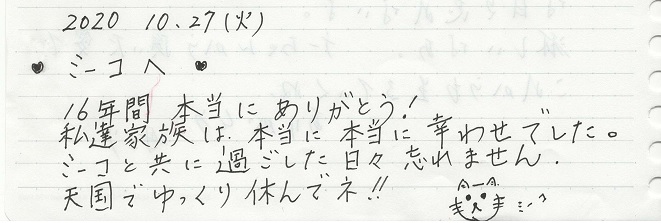 2020 10.27(火)
♥ ミーコへ ♥
16年間 本当にありがとう!
私達家族は 本当に本当に幸わせでした。
ミーコと共に過ごした日々 忘れません.
天国でゆっくり休んでネ!!
ミーコ